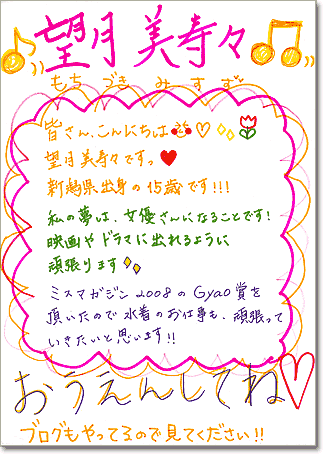 望月美寿々
もちづきみすず
皆さん、こんにちは
望月美寿々です。
新潟県出身の15歳です!!!
私の夢は、女優さんになることです!
映画やドラマに出れるように
頑張ります
ミスマガジン2008のGyaO賞を
頂いたので水着のお仕事も、頑張って
いきたいと思います!!
おうえんしてね
ブログもやってるので見てください!!